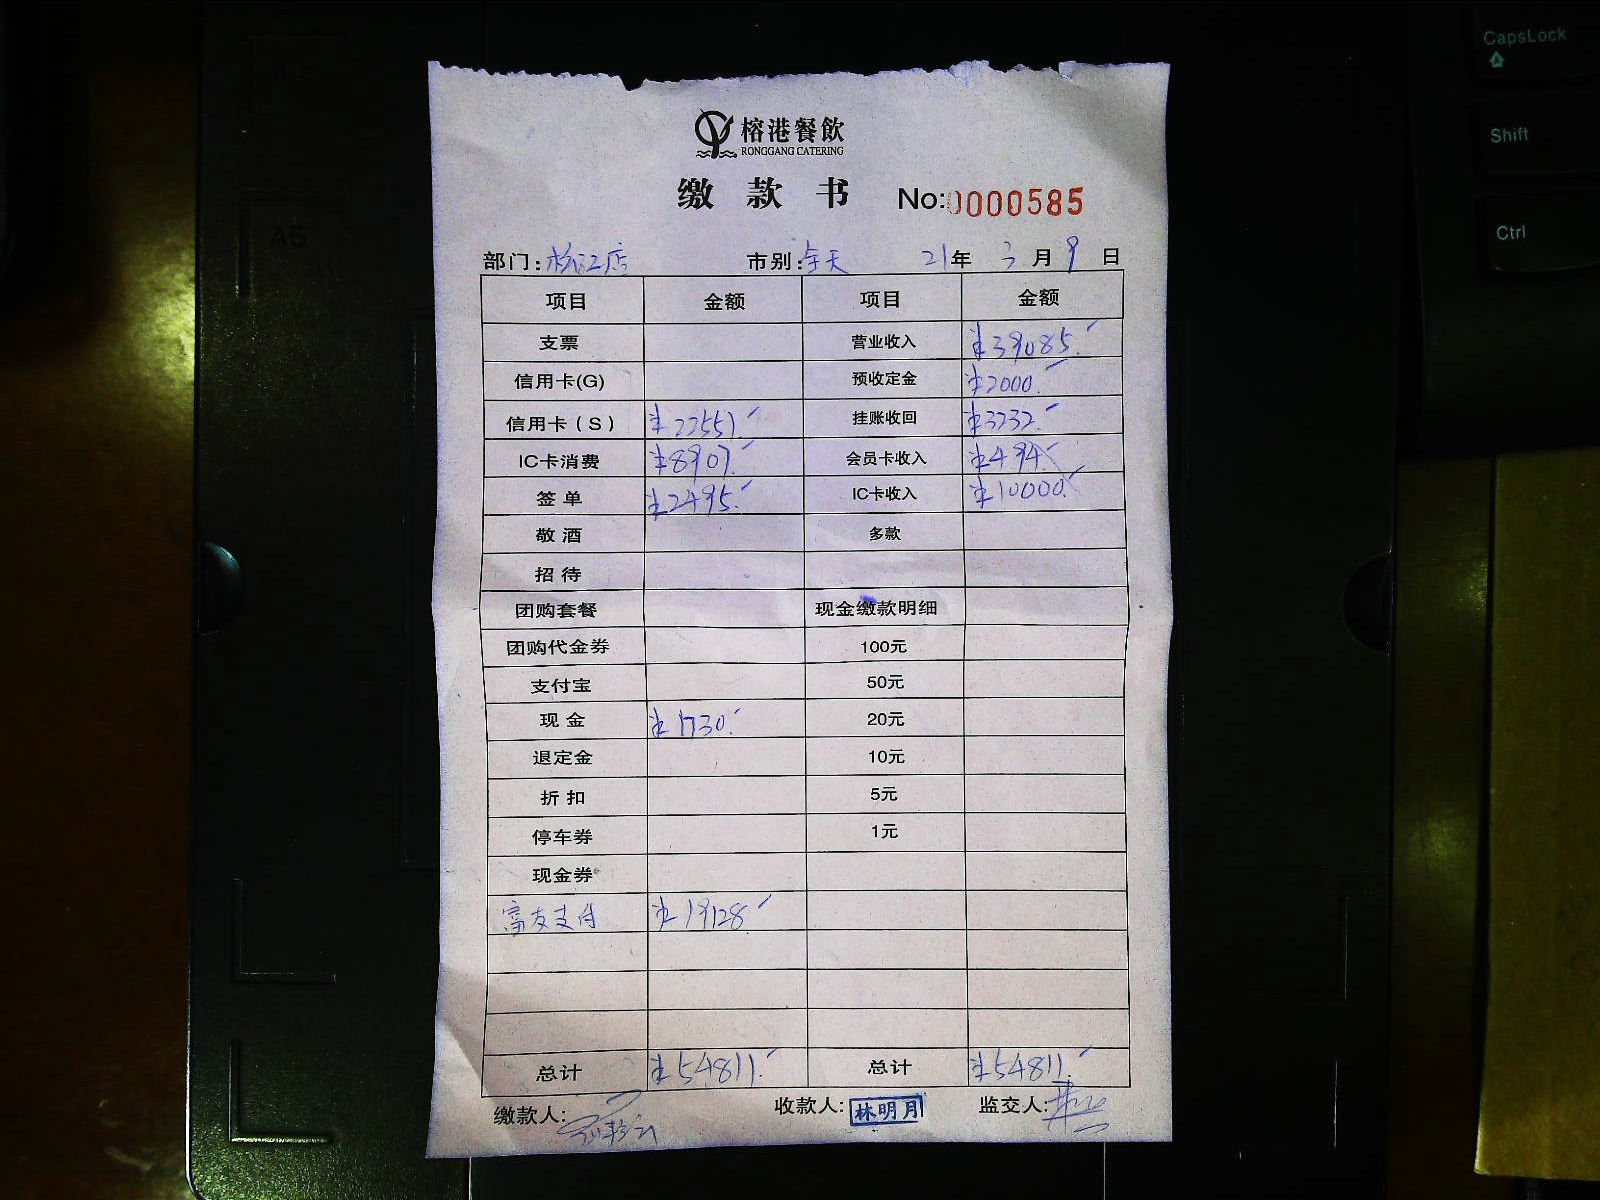 榕港餐飲
RONGGANG CATERING
缴款书 No:0000585
部门: 市别:全天 21年 3月 9日
项目 金额 项目 金额
支票 营业收入 ¥39085.
信用卡(G) 预收定金 ¥2000.
信用卡(S) ¥22551. 挂账收回 ¥3232.
IC卡消费 ¥8907. 会员卡收入 ¥494.
签单 ¥2495. IC卡收入 ¥10000.
敬酒 多款
招待
团购套餐 现金缴款明细
团购代金券 100元
支付宝 50元
现金 ¥1730. 20元
退定金 10元
折扣 5元
停车券 1元
现金券
富友支付 ¥19128.
总计 ¥54811. 总计 ¥54811.
缴款人: 收款人:林明月 监交人:
A5
CapsLock
Shift
Ctrl